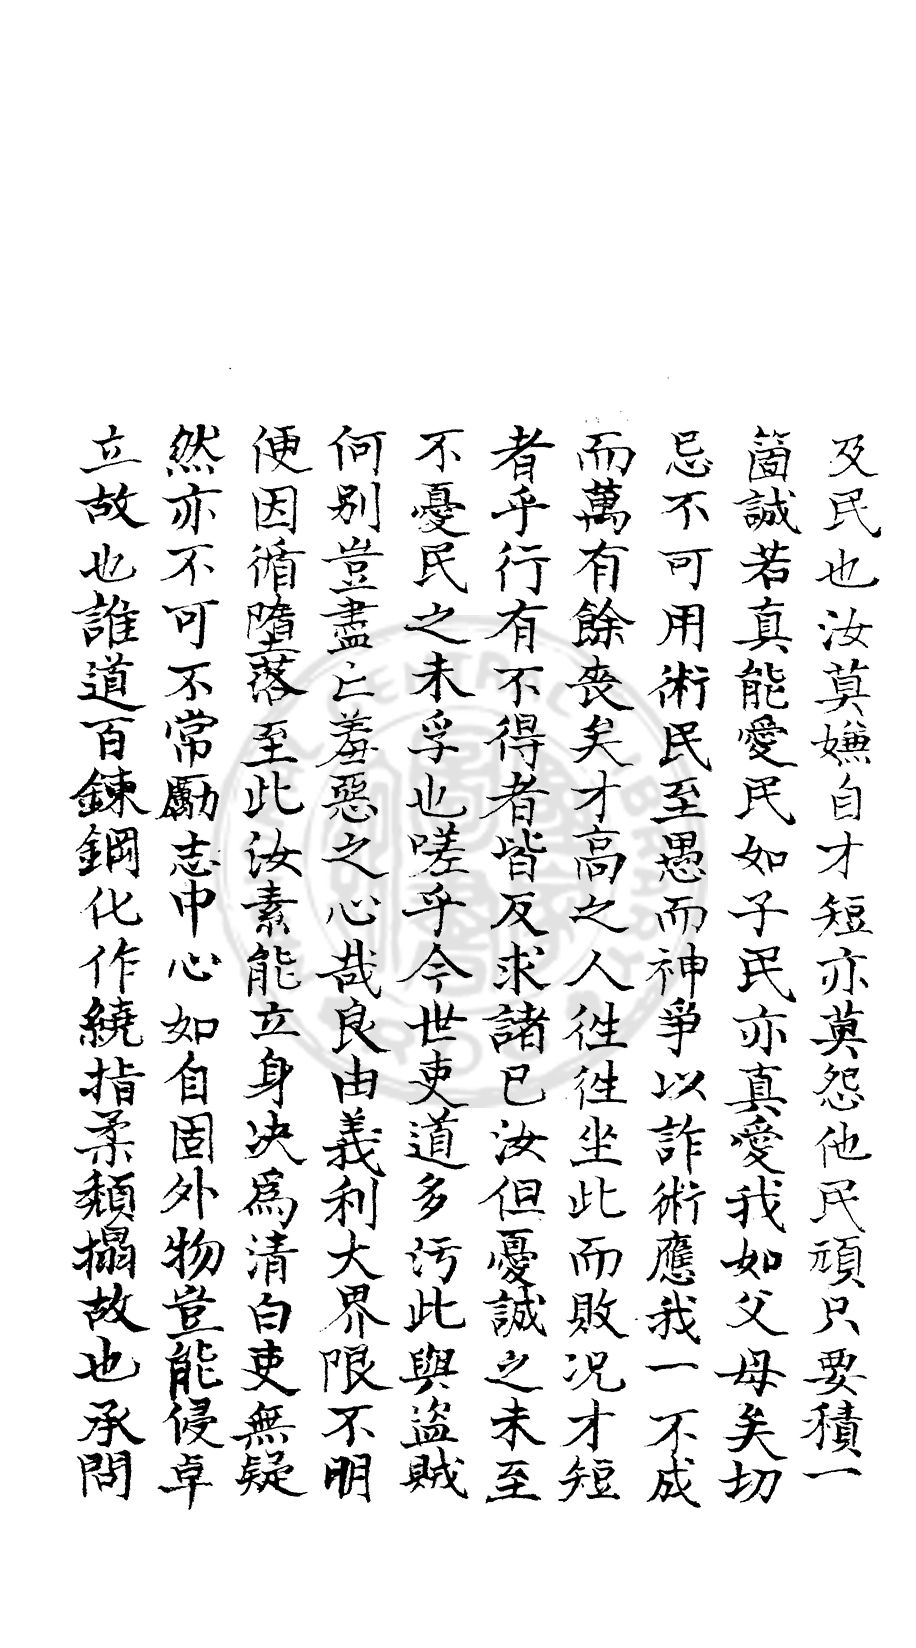 及民也汝莫嫌自才短亦莫怨他民頑只要積一
箇誠若真能愛民如子民亦真愛我如父母矣切
忌不可用術民至愚而神爭以詐術應我一不成
而萬有餘喪矣才高之人徃徃坐此而敗况才短
者乎行有不得者皆反求諸已汝但憂誠之未至
不憂民之未孚也嗟乎今世吏道多污此與盜賊
何别豈盡亡羞惡之心哉良由義利大界限不明
便因循墮落至此汝素能立身决爲清白吏無疑
然亦不可不常勵志中心如自固外物豈能侵卓
立故也誰道百鍊鋼化作繞指柔頽搨故也承問